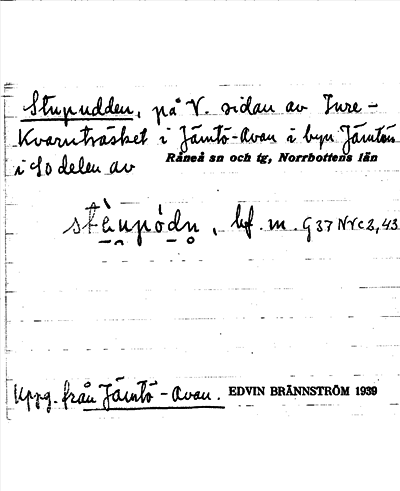 Stupudden, på V. sidan av Inre-
Kvarnträsket i Jämtö-Avan i byn Jämtön
i SO delen av Råneå sn och tg, Norrbottens län
bf. m. G 37 N Y C 2, 43
Uppg. från Jämtö-Avan. EDVIN BRÄNNSTRÖM 1939